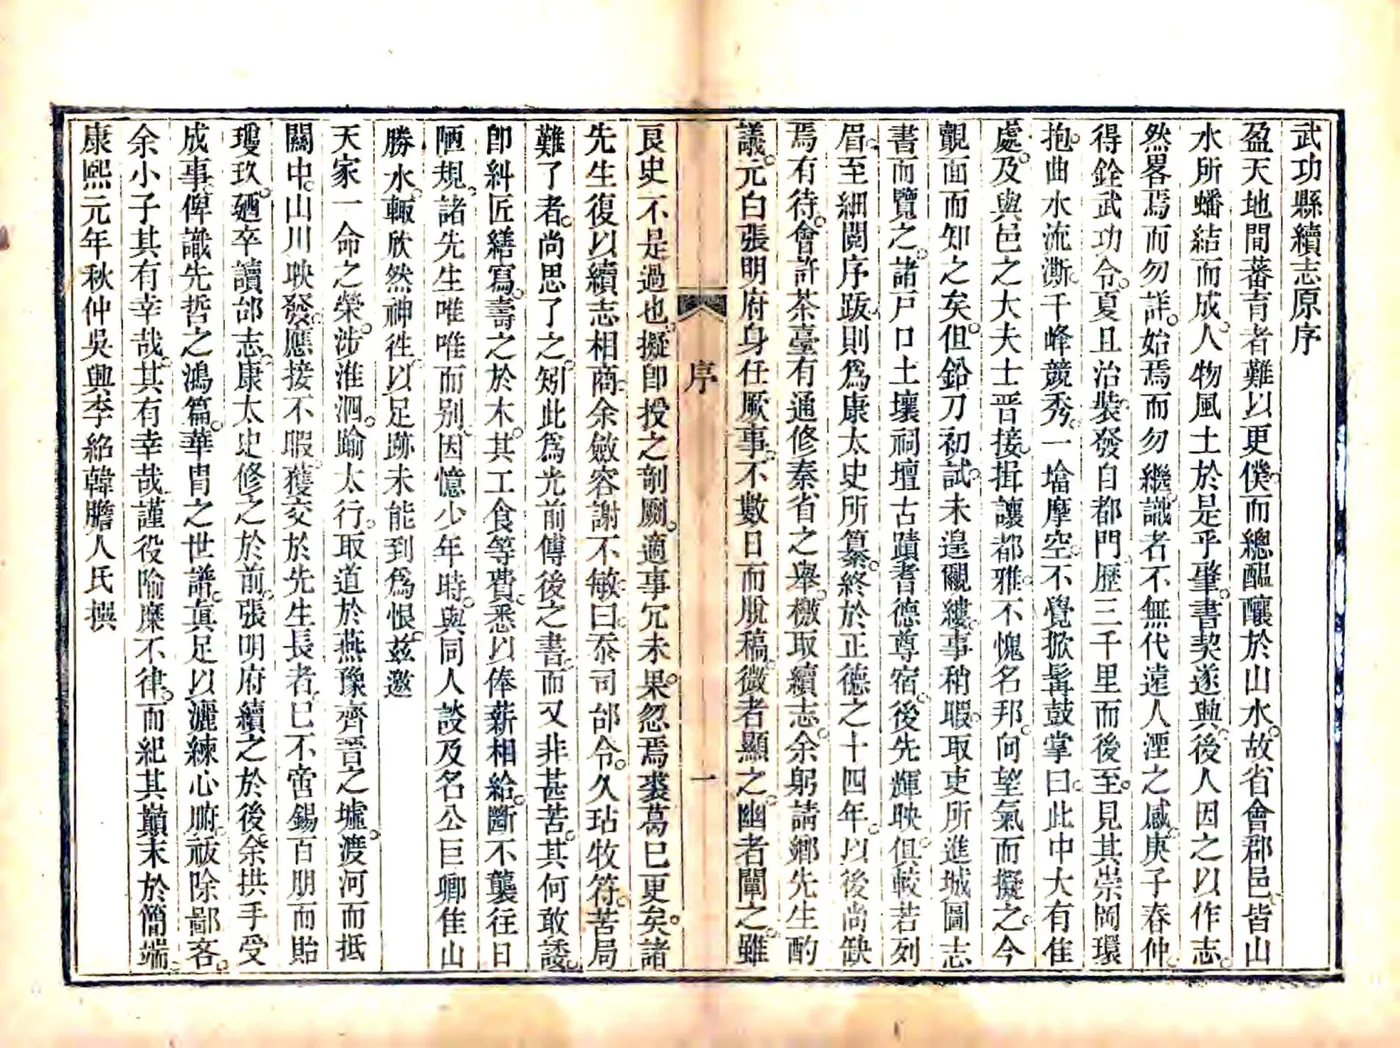 武功縣續志原序
盈天地間蕃育者難以更僕而總醞釀於山水故省會郡邑皆山
水所蟠結而成人物風土於是乎肇書契遂興後人因之以作志
然畧焉而勿詳始焉而勿繼識者不無代遠人湮之感庚子春仲
得銓武功令夏且治裝發自都門歷三千里而後至見其崇岡環
抱曲水流澌千峰競秀一塔摩空不覺掀髯鼓掌曰此中大有佳
處及與邑之大夫士晋接揖讓都雅不愧名邦向望氣而擬之今
覿面而知之矣但鉛刀初試未遑覼縷事稍暇取吏所進城圖志
書而覽之諸戸口土壤祠壇古蹟耆德尊宿後先輝映俱較若列
眉至細閱序跋則爲康太史所纂終於正德之十四年以後尚缺
焉有待會許茶臺有通修秦省之舉檄取續志余躬請鄉先生酌
議元白張明府身任厥事不數日而脫稿微者顯之幽者闡之雖
序
一
良史不是過也擬卽授之剞劂適事冗未果忽焉裘葛已更矣諸
先生復以續志相商余斂容謝不敏曰忝司邰令久玷牧符苦局
難了者尚思了之矧此爲光前傳後之書而又非甚苦其何敢諉
卽糾匠繕寫壽之於木其工食等費悉以俸薪相給斷不襲往日
陋規諸先生唯唯而别因憶少年時與同人談及名公巨卿佳山
勝水輙欣然神徃以足跡未能到爲恨兹邀
天家一命之榮涉淮泗踰太行取道於燕豫齊晋之墟渡河而抵
關中山川映發應接不暇獲交於先生長者已不啻錫百朋而貽
瓊玖廼卒讀邰志康太史修之於前張明府續之於後余拱手受
成事俾識先哲之鴻篇華胄之世譜真足以灑練心腑祓除鄙吝
余小子其有幸哉其有幸哉謹役隃糜不律而紀其巔末於簡端
康熙元年秋仲吳興李紹韓膽人氏撰